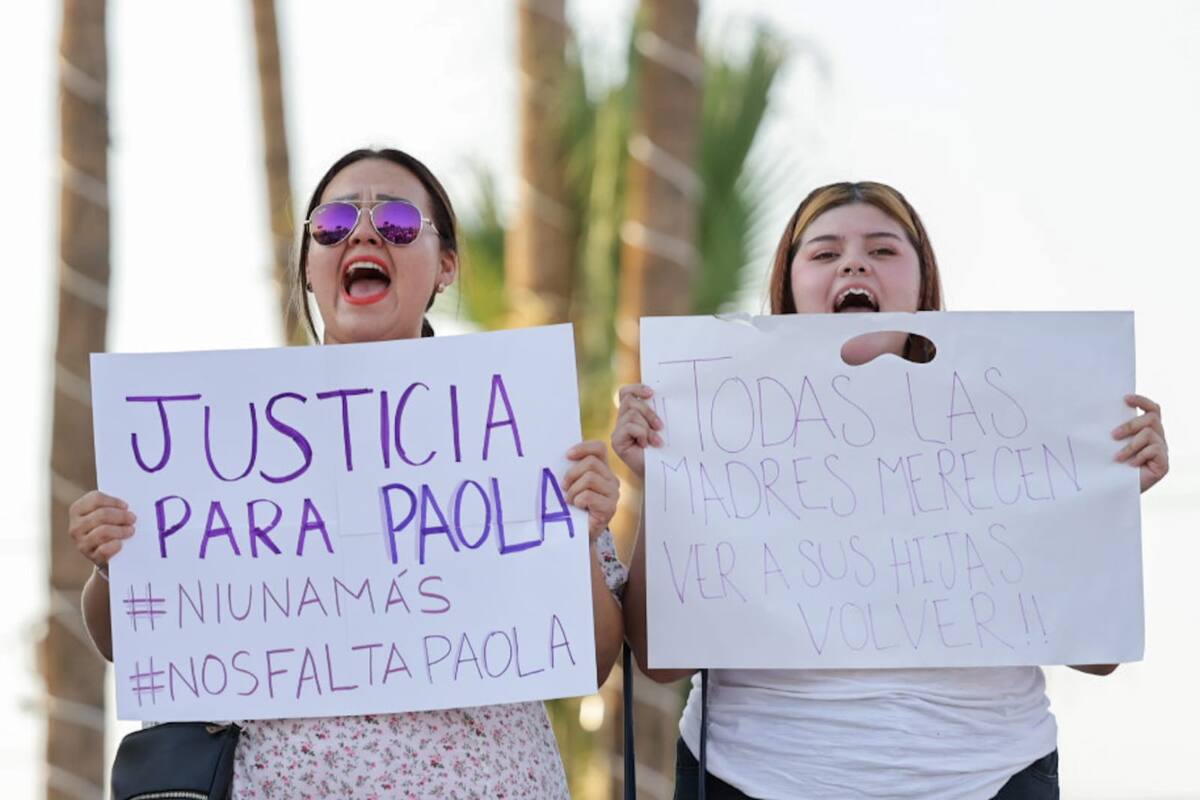 JUSTICIA
PARA PAOLA
#NIUNAMÁS
#NOSFALTAPAOLA
¡¡TODAS LAS
MADRES MERECEN
VER A SUS HIJAS
VOLVER!!